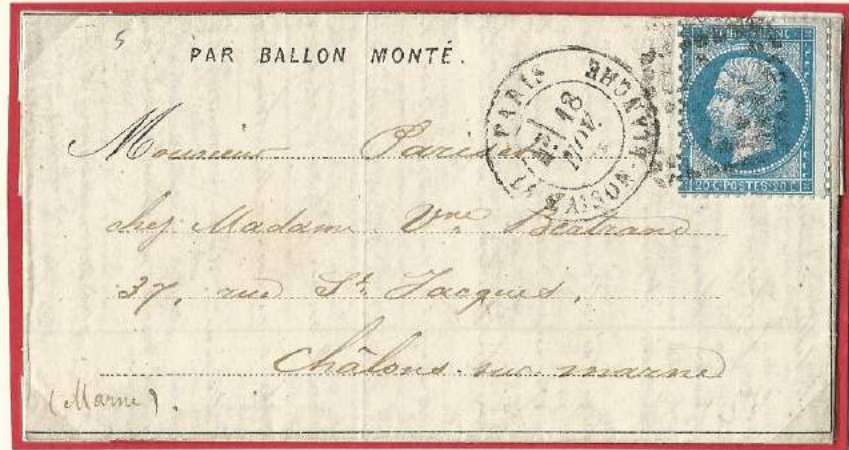 5
PAR BALLON MONTÉ.
PARIS
18
NOV
20 C. POSTES 20 C.
Monsieur
chez Madame Vve Bertrand
37, rue St Jacques,
Châlons sur marne
(Marne).